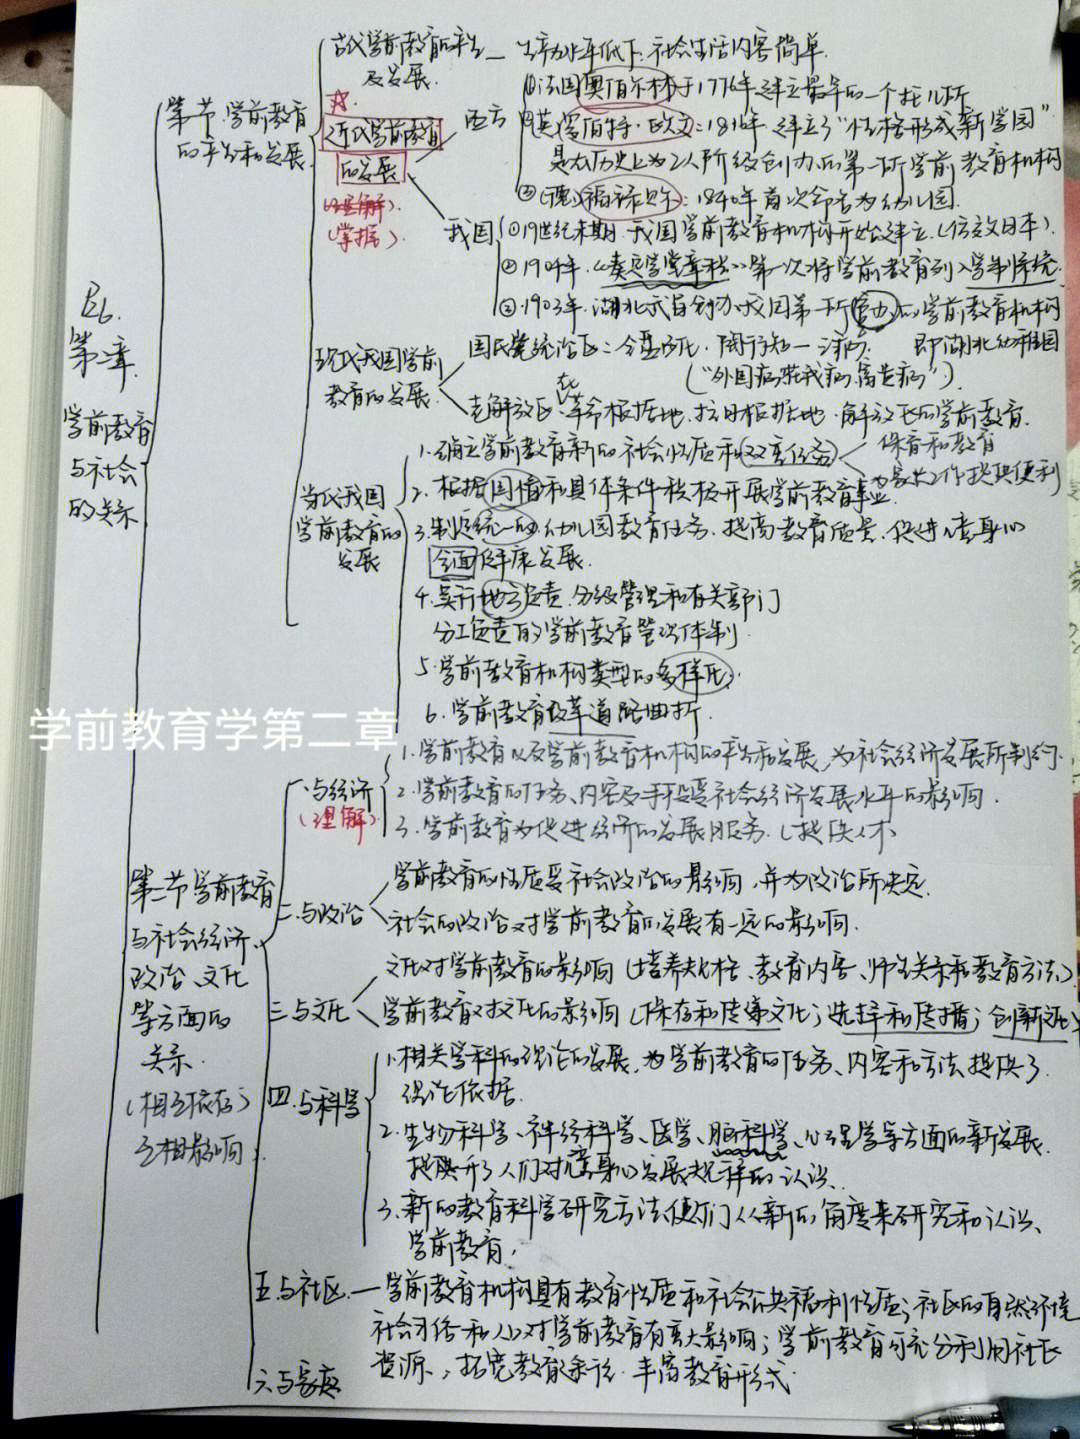 P26.
第二章.
学前教育
与社会
的关系
第一节.学前教育
的产生和发展
古代学前教育的产生
及发展.
生产力水平低下.社会生活内容简单.
☆.
近代学前教育
的发展
(理解).
(掌握).
西方
①法国奥伯尔林于1776年建立最早的一个托儿所
②(英)罗伯特·欧文:1816年.建立了"性格形成新学园"
是历史上为工人阶级创办的第一所学前教育机构
③(德)福禄贝尔:1840年首次命名为幼儿园.
我国
①19世纪末期.我国学前教育机构开始建立.(仿效日本).
②1904年.《奏定学堂章程》第一次将学前教育列入学制系统.
③1903年.湖北武昌创办我国第一所官办的学前教育机构
即湖北幼稚园
现代我国学前
教育的发展.
国民党统治区:全盘西化.陶行知—
("外国病花钱病富贵病").
老解放区:在革命根据地.抗日根据地.解放区的学前教育.
当代我国
学前教育的
发展
1.确立学前教育新的社会性质和双重任务
保育和教育
为家长工作提供便利
2.根据国情和具体条件积极开展学前教育事业.
3.制定统一的幼儿园教育任务.提高教育质量.促进儿童身心
全面健康发展.
4.实行地方负责.分级管理和有关部门
分工负责的学前教育管理体制.
5.学前教育机构类型的多样化.
6.学前教育改革道路曲折.
学前教育学第二章
第二节学前教育
与社会经济.
政治、文化
等方面的
关系.
(相互依存)
互相影响).
一.与经济
(理解).
1.学前教育以及学前教育机构的产生和发展,为社会经济发展所制约.
2.学前教育的任务、内容及手段受社会经济发展水平的影响.
3.学前教育为促进经济的发展服务.(提供人才
二.与政治
学前教育的性质受社会政治的影响,并为政治所决定.
社会的政治对学前教育的发展有一定的影响.
三.与文化
文化对学前教育的影响(培养规格、教育内容、师生关系和教育方法)
学前教育对文化的影响(保存和传递文化;选择和传播;创新文化)
四.与科学
1.相关学科的理论的发展,为学前教育的任务、内容和方法提供了
理论依据.
2.生物科学、神经科学、医学、脑科学、心理学等方面的新发展.
提升了人们对儿童身心发展规律的认识.
3.新的教育科学研究方法使人们从新的角度来研究和认识、
学前教育.
五.与社区.—学前教育机构具有教育性质和社会公共福利性质;社区的自然环境
社会习俗和人口对学前教育有重大影响;学前教育可充分利用社区
资源,拓宽教育途径.丰富教育形式.
六.与家庭